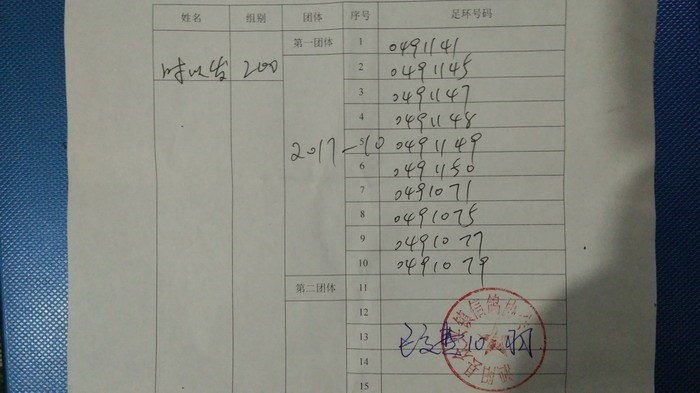 姓名 组别 团体 序号 足环号码
第一团体 1 0491141
200 2 0491145
3 0491147
4 0491148
2017-10 5 0491149
6 0491150
7 0491071
8 0491075
9 0491077
10 0491079
第二团体 11
12
13
14
15
信鸽协